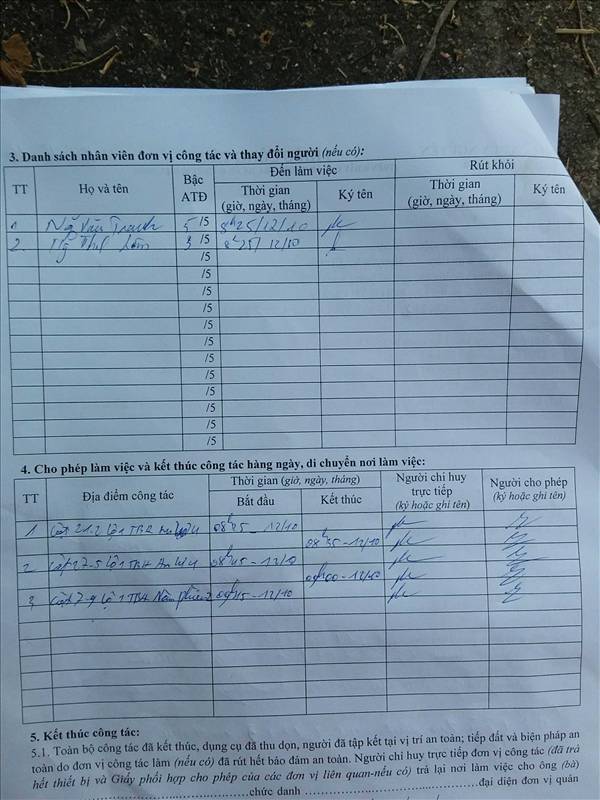 3. Danh sách nhân viên đơn vị công tác và thay đổi người (nếu có):
TT Họ và tên Bậc ATĐ Đến làm việc Rút khỏi
Thời gian (giờ, ngày, tháng) Ký tên Thời gian (giờ, ngày, tháng) Ký tên
1 Văn 5 /5 8h25/12/10
2 3 /5 8h25/12/10
/5
/5
/5
/5
/5
/5
/5
/5
/5
/5
/5
/5
4. Cho phép làm việc và kết thúc công tác hàng ngày, di chuyển nơi làm việc:
TT Địa điểm công tác Thời gian (giờ, ngày, tháng) Người chỉ huy trực tiếp (ký hoặc ghi tên) Người cho phép (ký hoặc ghi tên)
Bắt đầu Kết thúc
1 lộ 1 TBA - 12/10
08h35 - 12/10
2 lộ 1 TBA 08h45 - 12/10
- 12/10
3 lộ 1 TBA - 12/10
5. Kết thúc công tác:
5.1. Toàn bộ công tác đã kết thúc, dụng cụ đã thu dọn, người đã tập kết tại vị trí an toàn; tiếp đất và biện pháp an
toàn do đơn vị công tác làm (nếu có) đã rút hết bảo đảm an toàn. Người chỉ huy trực tiếp đơn vị công tác (đã trả
hết thiết bị và Giấy phối hợp cho phép của các đơn vị liên quan-nếu có) trả lại nơi làm việc cho ông (bà)
chức danh đại diện đơn vị quản